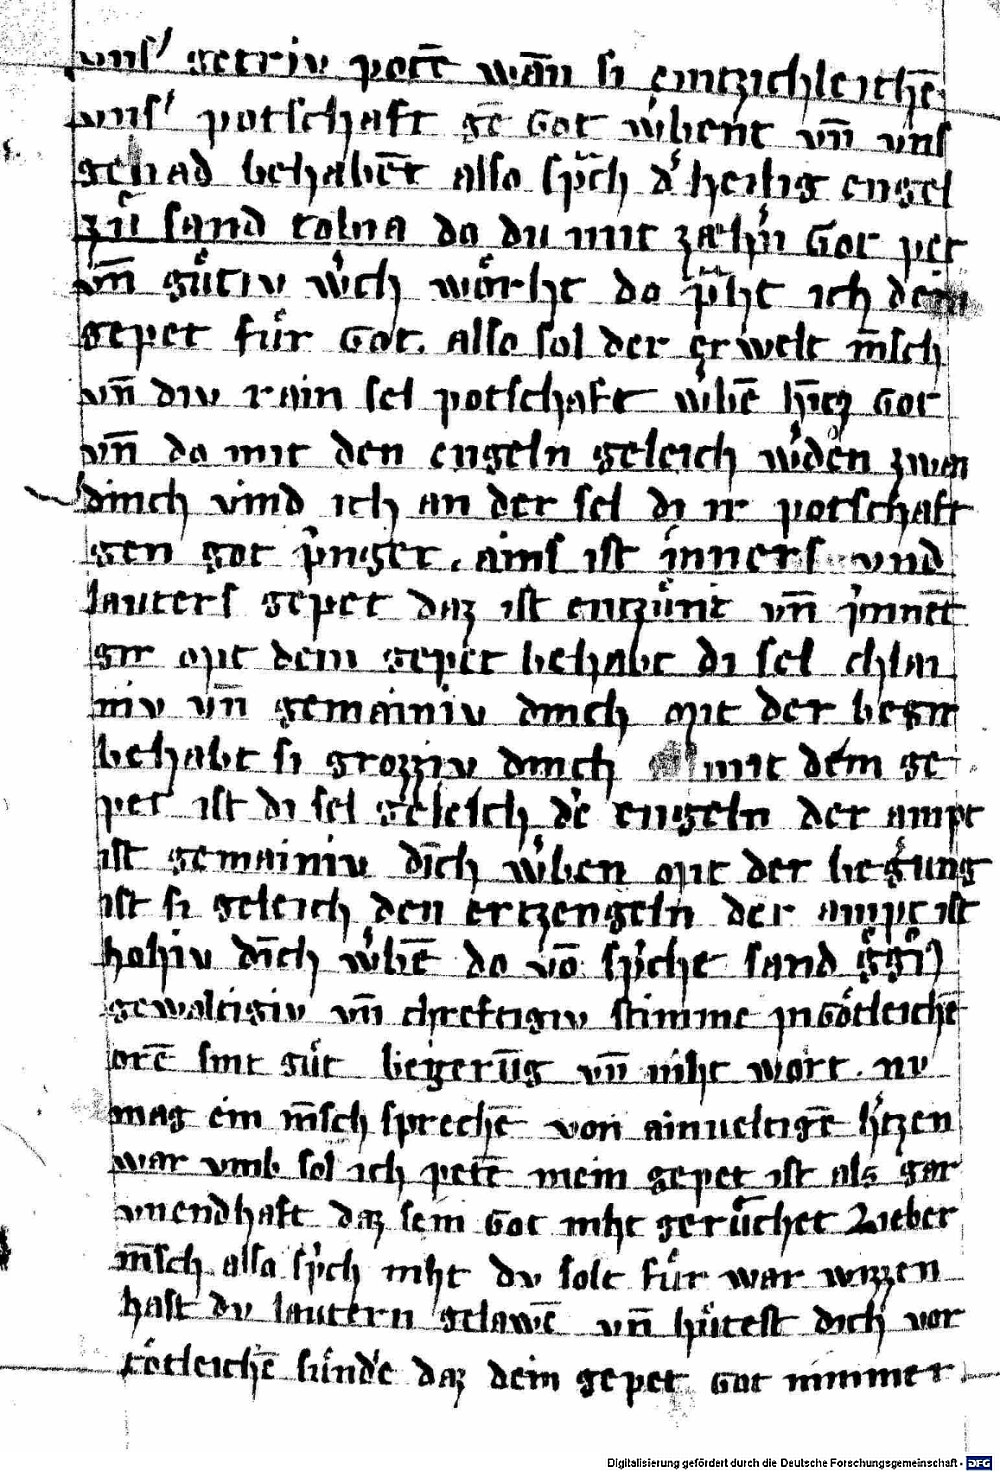 vnsʼ getriv potē wān si emtzichleichē
vnsʼ potschaft gē Got wͥbent vn̄ vns
genad behabēt also sp̄ch dʼ heilig engel
zuͦ sand tobia do du mit zæhʼn Got pet
vn̄ guͤtiv wʼch woͤrht do p̄ht ich dein
gepet fuͤr Got. Also sol der erwelt m̄sch
vn̄ div rain sel potschaft wʼbē hīez Got
vn̄ do mit den engeln geleich wʼden zwen
dinch vind ich an der sel di ir potschaft
gen got pʼnget. ains ist inners vnd
lauters gepet daz ist entzuͤnt vn̄ pʼinnēt
gir Mit dem gepet behabt di sel chlai
niv vn̄ gemainiv dinch Mit der begir
behabt si grozziv dinch mit dem ge
pet ist di sel geleich dē engeln der ampt
ist gemainiv dīch wʼben Mit der begʼung
ist si geleich den ertzengeln der ampt ist
hohiv dīch wʼbē do vō spʼche sand
gewaltigiv vn̄ chreftigiv stimme in Goͤtleichē
orē sint guͤt begerūg vn̄ niht wort. nv
mag ein m̄sch sprechē von ainueltigē hʼtzen
war vmb sol ich petē mein gepet ist als gar
vnendhaft daz sein Got niht gerūchet Lieber
m̄sch also spʼch niht dv solt fuͤr war wizzen
hast dv lautern gelawē vn̄ huͤtest dich vor
toͤtleichē suͤnde daz dein gepet Got nimmer
Digitalisierung gefördert durch die Deutsche Forschungsgemeinschaft - DFG